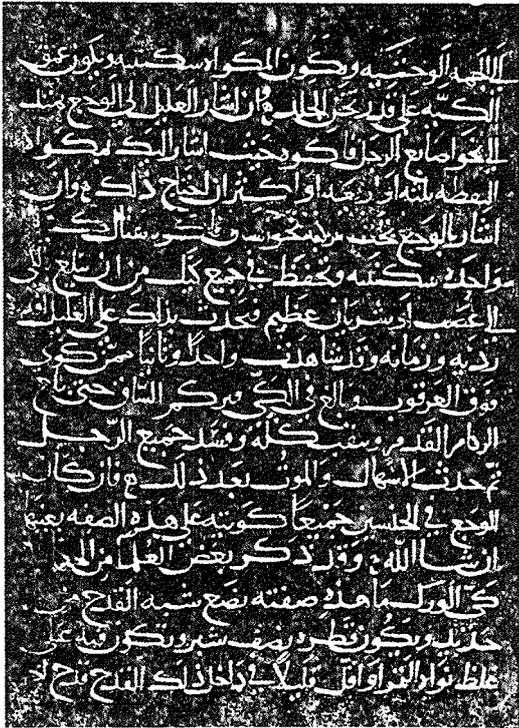 الى الجهه الوحشيه ويكون المكواه سكينيه ويكون عمق
الكيّه على قدر ثخن الجلد ع وان اشار العليل الى الوجع يمتد
الى نحو اصابع الرجل فاكوه حيث اشار لك بمكواه
النقطه ثلثه او اربعه او اكثر ان احتاج ذلك ع وان
اشار بالوجع تحت ركبته نحو فاكوه هنالك كيه
واحده سكينيه وتحفظ في جميع من ان تبلغ الكي
الى عصب او شريان عظيم فتحدث بذلك على العليل
رديه وزمانه وقد شاهدت واحدًا وثانيًا ممن كوي
فوق العرقوب وبالغ في الكي الساق حتى بلغ
الورم القدم كله وفسد جميع الرجل
ثم حدث الاسهال والموت بعد ذلك ع فان كان
الوجع في جميعاً كويته على هذه الصفه بعينها
ان شا الله وقد ذكر بعض العلما
كي الورك ما هذه صفته تصنع شبه القدح من
حديد ويكون قطره نصف شبر وتكون على
غلظ نوا التمر او اقل قليلاً في داخل ذلك القدح قدح